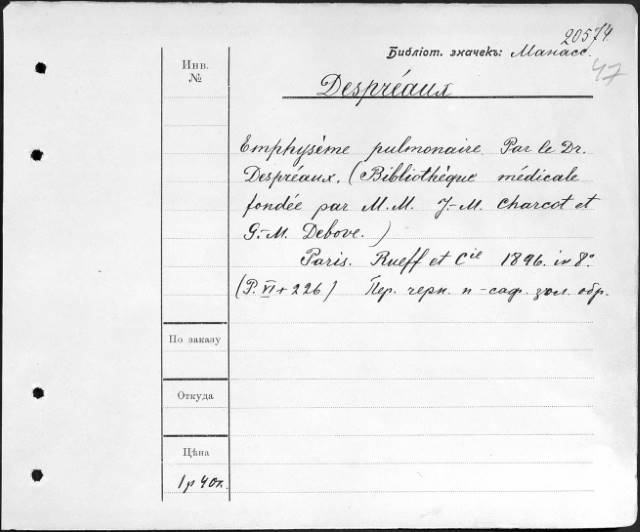 20574
Библіот. значекъ: Манасс.
47
Инв.
№
Despréaux
Emphysème pulmonaire. Par le Dr.
Despréaux. (Bibliothèque médicale
fondée par M.M. J.-M. Charcot et
G.-M. Debove.)
Paris. Rueff et Cie 1896. in 8°
(P. VI + 226) Пер. черн. п-саф. зол. обр.
По заказу
Откуда
Цѣна
1 р 40 к.